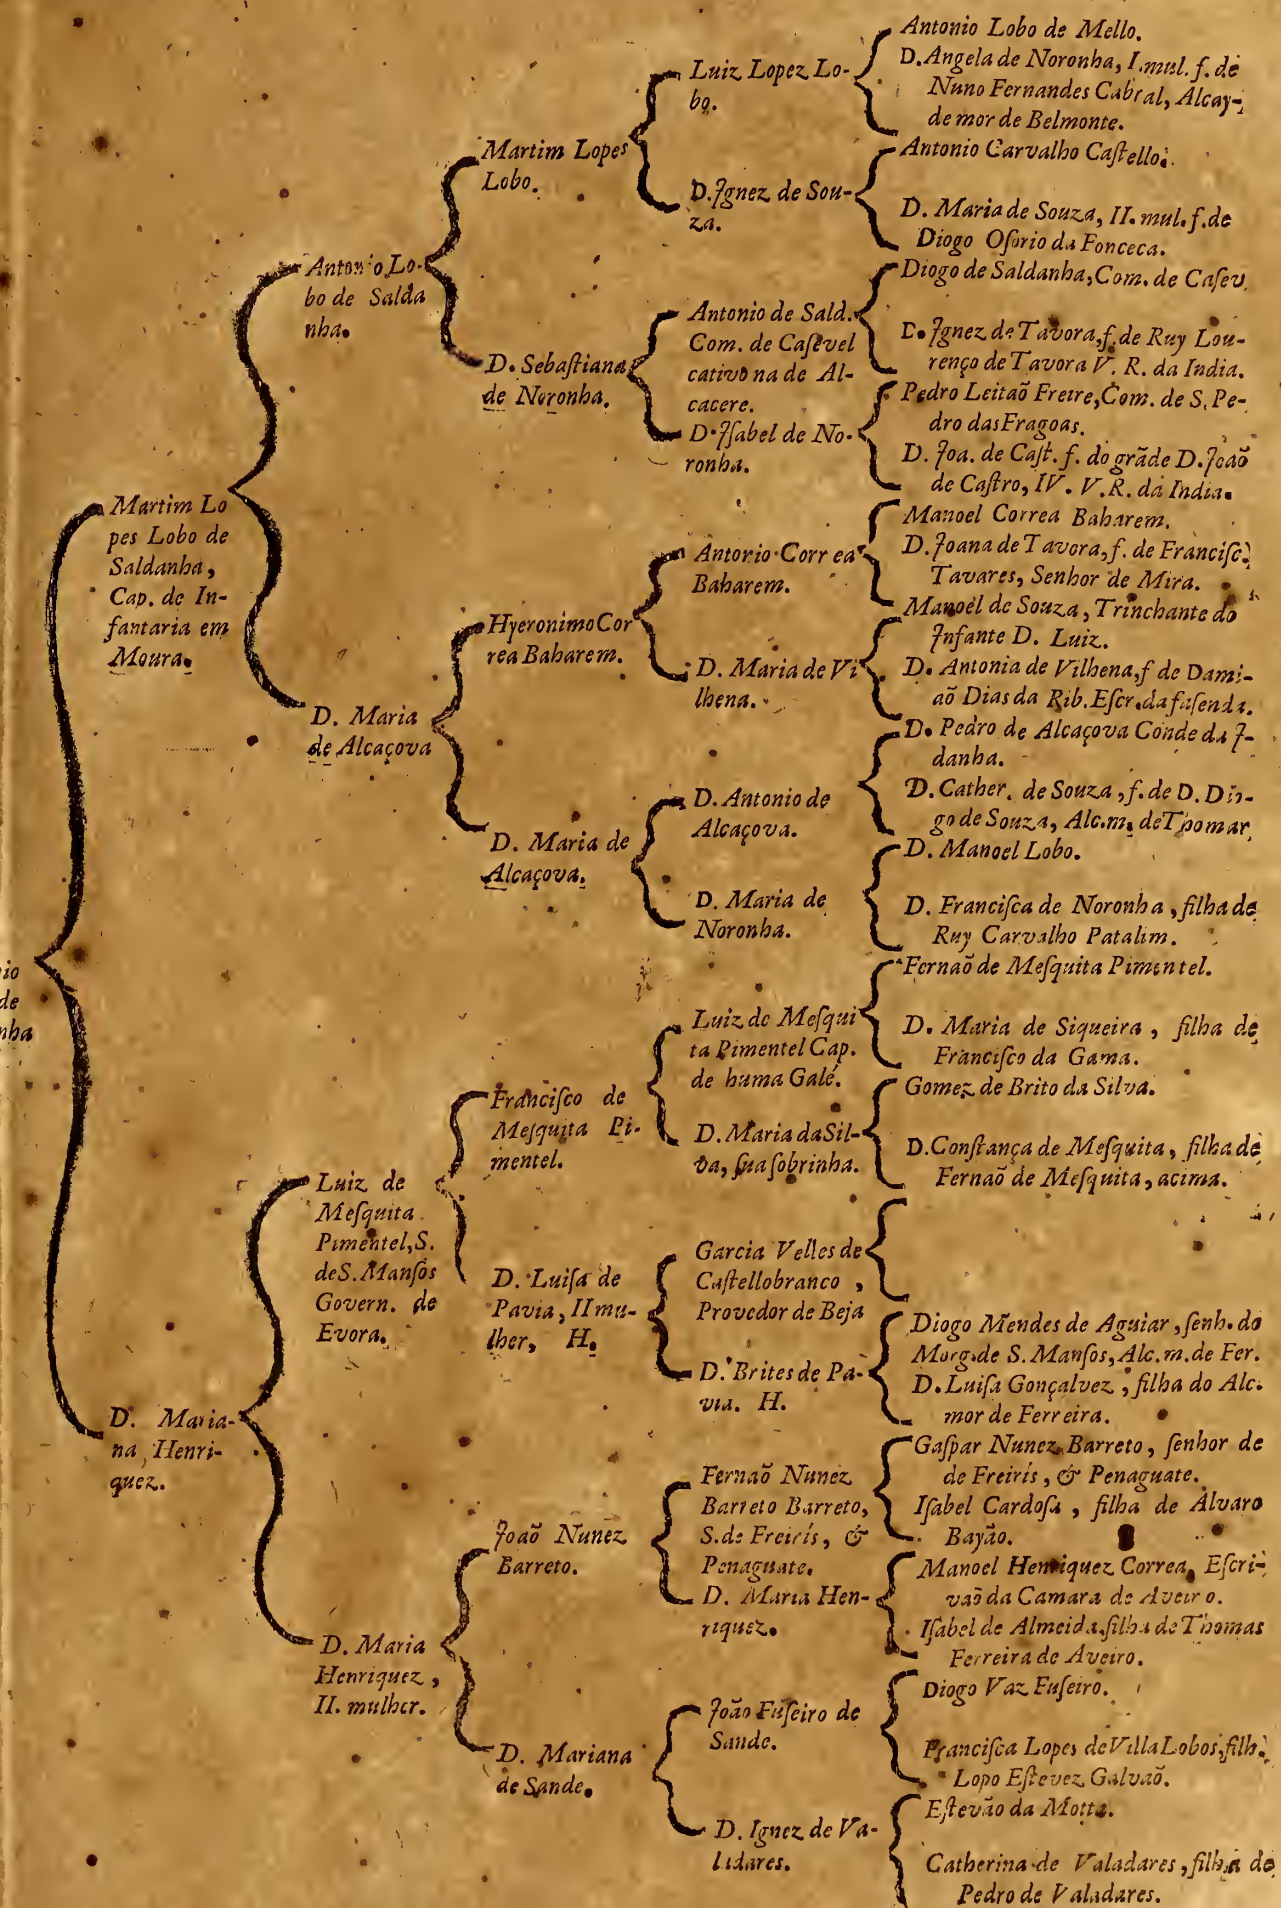 nha
Martim Lo
pes Lobo de
Saldanha,
Cap. de In-
fantaria em
Moura.
D. Maria-
na Henri-
quez.
Antonio Lo-
bo de Salda
nha.
D. Maria
de Alcaçova
Luiz de
Meſquita
Pimentel, S.
de S. Manſos
Govern. de
Evora.
D. Maria
Henriquez,
II. mulher.
Martim Lopes
Lobo.
D. Sebaſtiana
de Noronha.
Hyeronimo Cor
rea Baharem.
D. Maria de
Alcaçova.
Franciſco de
Meſquita Pi-
mentel.
D. Luiſa de
Pavia, II mu-
lher, H.
Joaõ Nunez
Barreto.
D. Mariana
de Sande.
Luiz Lopez Lo-
bo.
D. Ignez de Sou-
za.
Antonio de Sald.
Com. de Caſevel
cativo na de Al-
cacere.
D. Iſabel de No-
ronha.
Antonio Correa
Baharem.
D. Maria de Vi
lhena.
D. Antonio de
Alcaçova.
D. Maria de
Noronha.
Luiz de Meſqui
ta Pimentel Cap.
de huma Galé.
D. Maria da Sil-
va, ſua ſobrinha.
Garcia Velles de
Caſtellobranco,
Provedor de Beja
D. Brites de Pa-
via. H.
Fernaõ Nunez
Barreto Barreto,
S. de Freirís, &
Penaguate.
D. Maria Hen-
riquez.
Joaõ Fuſeiro de
Sande.
D. Ignez de Va-
lidares.
Antonio Lobo de Mello.
D. Angela de Noronha, I. mul. f. de
Nuno Fernandes Cabral, Alcay-
de mor de Belmonte.
Antonio Carvalho Caſtello.
D. Maria de Souza, II. mul. f. de
Diogo Oſorio da Fonceca.
Diogo de Saldanha, Com. de Caſev.
D. Ignez de Tavora, f. de Ruy Lou-
renço de Tavora V. R. da India.
Pedro Leitaõ Freire, Com. de S. Pe-
dro das Fragoas.
D. Joa. de Caſt. f. do grãde D. Joaõ
de Caſtro, IV. V. R. da India.
Manoel Correa Baharem.
D. Joana de Tavora, f. de Franciſc.
Tavares, Senhor de Mira.
Manoel de Souza, Trinchante do
Infante D. Luiz.
D. Antonia de Vilhena, f de Dami-
aõ Dias da Rib. Eſcr. da faſenda.
D. Pedro de Alcaçova Conde da I-
danha.
D. Cather. de Souza, f. de D. Dio-
go de Souza, Alc. m. de Thomar
D. Manoel Lobo.
D. Franciſca de Noronha, filha de
Ruy Carvalho Patalim.
Fernaõ de Meſquita Pimentel.
D. Maria de Siqueira, filha de
Franciſco da Gama.
Gomez de Brito da Silva.
D. Conſtança de Meſquita, filha de
Fernaõ de Meſquita, acima.
Diogo Mendes de Aguiar, ſenh. do
Morg. de S. Manſos, Alc. m. de Fer.
D. Luiſa Gonçalvez, filha do Alc.
mor de Ferreira.
Gaſpar Nunez Barreto, ſenhor de
de Freirís, & Penaguate.
Iſabel Cardoſa, filha de Alvaro
Bayão.
Manoel Henriquez Correa, Eſcri-
vaõ da Camara de Aveiro.
Iſabel de Almeida, filha de Thomas
Ferreira de Aveiro.
Diogo Vaz Fuſeiro.
Franciſca Lopes de Villa Lobos, filh.
Lopo Eſtevez Galvaõ.
Eſtevão da Motta.
Catherina de Valadares, filha de
Pedro de Valadares.